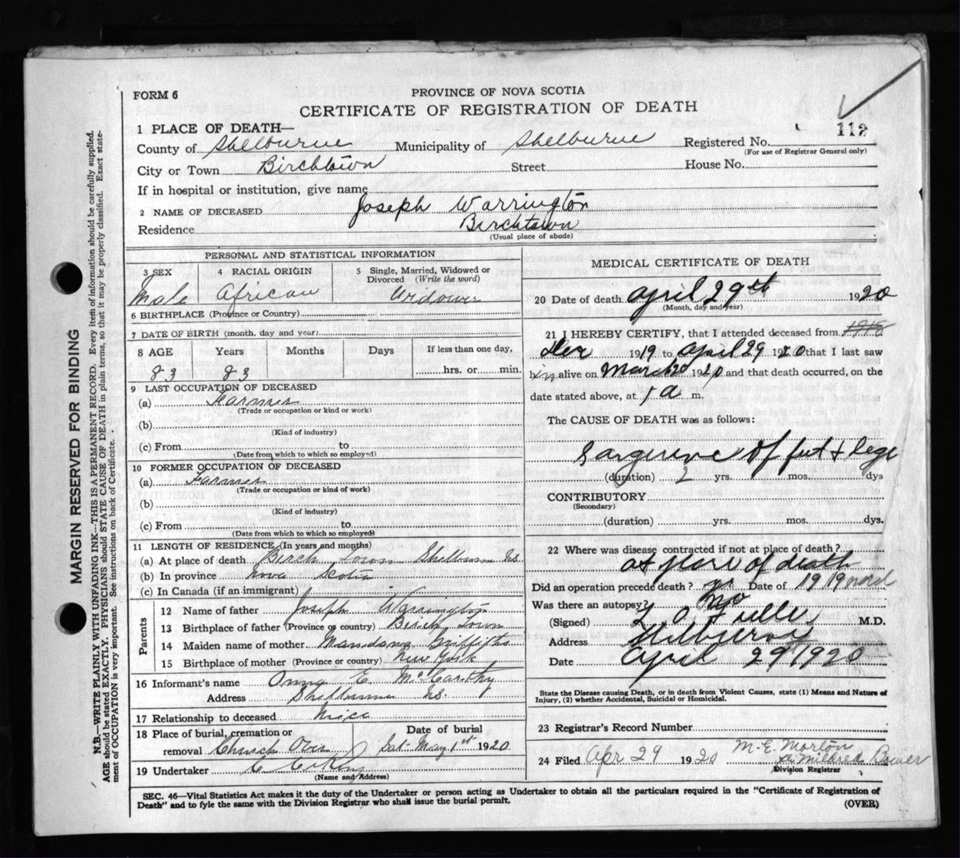 FORM 6
PROVINCE OF NOVA SCOTIA
CERTIFICATE OF REGISTRATION OF DEATH
1 PLACE OF DEATH—
County of Shelburne Municipality of Shelburne Registered No. 112
(For use of Registrar General only)
City or Town Birchtown Street House No.
If in hospital or institution, give name
2 NAME OF DECEASED Joseph Warrington
Residence Birchtown
(Usual place of abode)
PERSONAL AND STATISTICAL INFORMATION
3 SEX 4 RACIAL ORIGIN 5 Single, Married, Widowed or Divorced (Write the word)
Male African Widower
6 BIRTHPLACE (Province or Country)
7 DATE OF BIRTH (month, day and year)
8 AGE Years Months Days If less than one day,
83 83 hrs. or min.
9 LAST OCCUPATION OF DECEASED
(a) Farmer
(Trade or occupation or kind or work)
(b)
(Kind of industry)
(c) From to
(Date from which to which so employed)
10 FORMER OCCUPATION OF DECEASED
(a) Farmer
(Trade or occupation or kind of work)
(b)
(Kind of industry)
(c) From to
(Date from which to which so employed)
11 LENGTH OF RESIDENCE (In years and months)
(a) At place of death Birch Town Shelburn NS
(b) In province Nova Scotia
(c) In Canada (if an immigrant)
Parents
12 Name of father Joseph Warrington
13 Birthplace of father (Province or country) Birch Town
14 Maiden name of mother Griffiths
15 Birthplace of mother (Province or country) New York
16 Informant's name E. McCarthy
Address Shelburne NS.
17 Relationship to deceased Niece
18 Place of burial, cremation or removal Church Date of burial Sat May 1st 1920
19 Undertaker
(Name and Address)
MEDICAL CERTIFICATE OF DEATH
20 Date of death April 29th 1920
(Month, day and year)
21 I HEREBY CERTIFY, that I attended deceased from 1918
Dec 1919 to April 29 1920 that I last saw
him alive on March 20 1920 and that death occurred, on the
date stated above, at 1 a m.
The CAUSE OF DEATH was as follows:
Gangrene of feet & legs
(duration) 2 yrs. mos. dys
CONTRIBUTORY
(Secondary)
(duration) yrs. mos. dys.
22 Where was disease contracted if not at place of death?
at place of death
Did an operation precede death? Date of 1919
Was there an autopsy? No
(Signed) L O Fuller M.D.
Address Shelburne
Date April 29 1920
State the Disease causing Death, or in death from Violent Causes, state (1) Means and Nature of
Injury, (2) whether Accidental, Suicidal or Homicidal.
23 Registrar's Record Number
24 Filed Apr 29 1920 M. E. Morton
Mildred Bower
Division Registrar
SEC. 46—Vital Statistics Act makes it the duty of the Undertaker or person acting as Undertaker to obtain all the particulars required in the "Certificate of Registration of
Death" and to fyle the same with the Division Registrar who shall issue the burial permit.
(OVER)
MARGIN RESERVED FOR BINDING
N.B.—WRITE PLAINLY WITH UNFADING INK—THIS IS A PERMANENT RECORD. Every item of information should be carefully supplied.
AGE should be stated EXACTLY. PHYSICIANS should STATE CAUSE OF DEATH in plain terms, so that it may be properly classified. Exact state-
ment of OCCUPATION is very important. See instructions on back of Certificate.